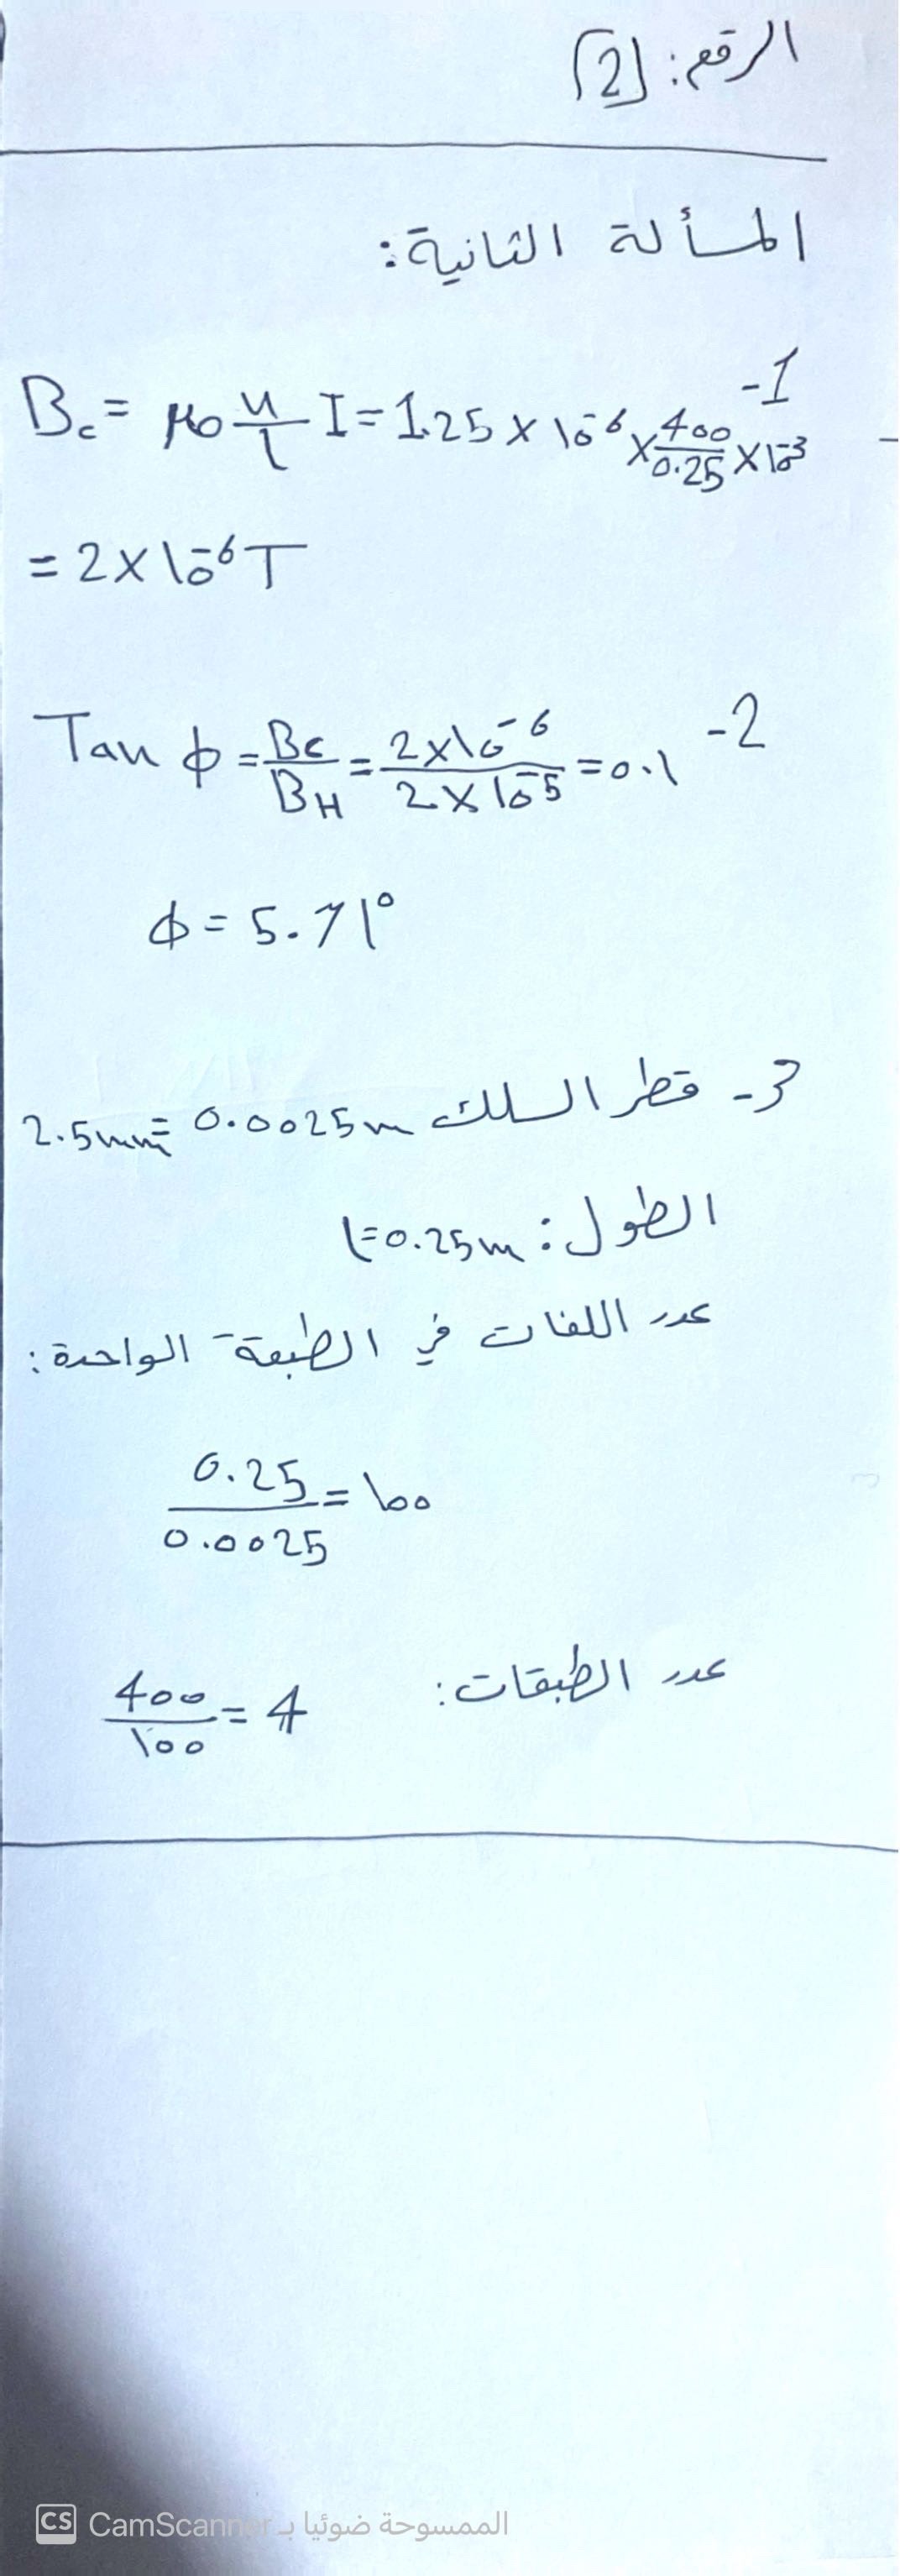 الرقم: [2]
المسألة الثانية:
-1
Bc = μ0 N/l I = 1.25 × 10^-6 × 400/0.25 × 10^-3
= 2 × 10^-6 T
-2
Tan ϕ = Bc/BH = 2×10^-6/2×10^-5 = 0.1
ϕ = 5.71°
3- قطر السلك 2.5mm = 0.0025m
الطول: l=0.25m
عدد اللفات في الطبقة الواحدة:
0.25/0.0025 = 100
عدد الطبقات: 400/100 = 4
CS CamScanner الممسوحة ضوئيا بـ